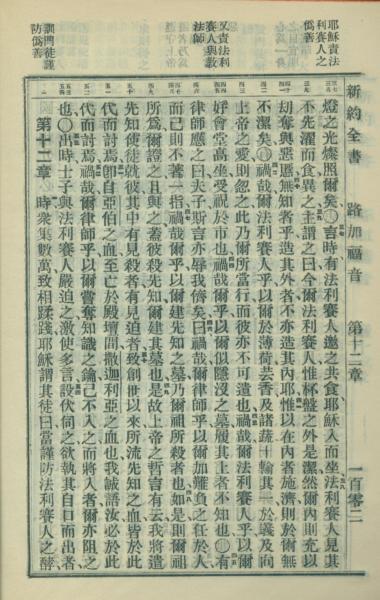 新約全書 路加福音 第十二章 一百零二
耶穌責法
利賽人之
僞善
又責法利
賽人與教
法師
訓門徒謹
防僞善
燈之光燦照爾矣○言時有法利賽人邀之共食耶穌入而坐法利賽人見其
不先濯而食異之主謂之曰今爾法利賽人惟杯盤之外是潔然爾內則充以
劫奪與惡慝無知者乎造其外者不亦造其內耶惟以在內者施濟則於爾無
不潔矣○禍哉爾法利賽人乎以爾於薄荷芸香及諸蔬十輸其一於義及向
上帝之愛則忽之此乃爾所當行而彼亦不可遺也禍哉爾法利賽人乎以爾
好會堂高坐受祝於市也禍哉爾乎以爾似隱沒之墓履其上者不知也○有
律師應之曰夫子斯言亦辱我儕矣曰禍哉爾律師乎以爾加難負之任於人
而己則不著一指禍哉爾乎以爾建先知之墓乃爾祖所殺者也如是則爾祖
所爲爾證之且與之蓋彼殺先知爾建其墓也是故上帝之哲言有云我將遣
先知使徒就彼其中有見殺者有見迫者致創世以來所流先知之血皆於此
代而討焉卽自亞伯之血至亡於殿壇間撒迦利亞之血也我誠語汝必於此
代而討焉禍哉爾律師乎以爾嘗奪知識之鑰己不入之而將入者爾亦阻之
也○出時士子與法利賽人嚴迫之激使多言設伏伺之欲執其自口而出者
第十二章 時衆集數萬致相蹂踐耶穌謂其徒曰當謹防法利賽人之酵